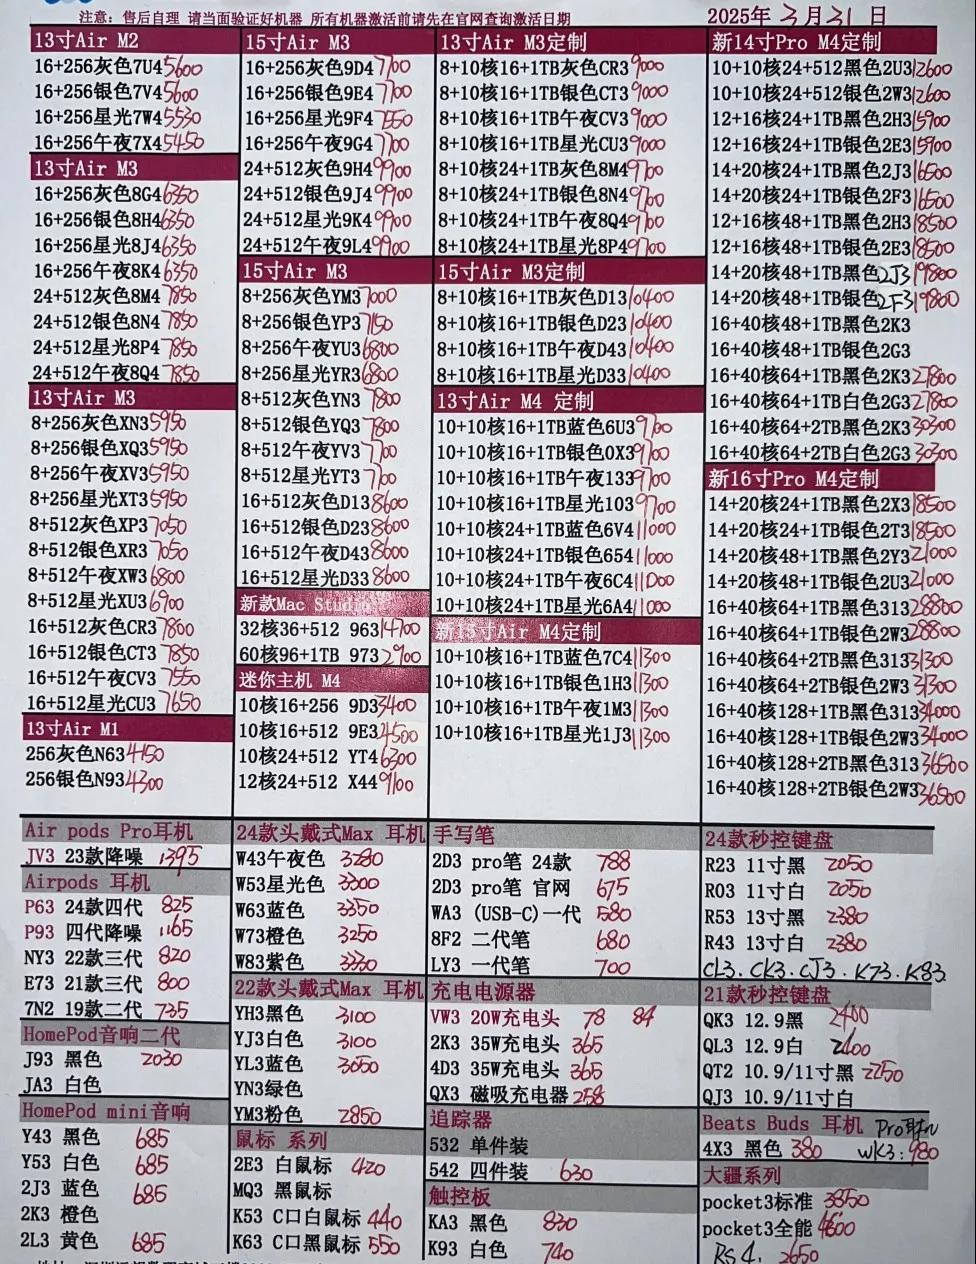 注意: 售后自理 请当面验证好机器 所有机器激活前请先在官网查询激活日期
2025年 3月31日
13寸Air M2
16+256灰色7U4 5600
16+256银色7V4 5600
16+256星光7W4 5530
16+256午夜7X4 5450
13寸Air M3
16+256灰色8G4 6350
16+256银色8H4 6350
16+256星光8J4 6350
16+256午夜8K4 6350
24+512灰色8M4 7850
24+512银色8N4 7850
24+512星光8P4 7850
24+512午夜8Q4 7850
13寸Air M3
8+256灰色XN3 5950
8+256银色XQ3 5950
8+256午夜XV3 5950
8+256星光XT3 5950
8+512灰色XP3 7050
8+512银色XR3 7050
8+512午夜XW3 6800
8+512星光XU3 6900
16+512灰色CR3 7800
16+512银色CT3 7850
16+512午夜CV3 7550
16+512星光CU3 7650
13寸Air M1
256灰色N63 4150
256银色N93 4300
15寸Air M3
16+256灰色9D4 7700
16+256银色9E4 7700
16+256星光9F4 7550
16+256午夜9G4 7700
24+512灰色9H4 9900
24+512银色9J4 9900
24+512星光9K4 9900
24+512午夜9L4 9900
15寸Air M3
8+256灰色YM3 7000
8+256银色YP3 7150
8+256午夜YU3 6800
8+256星光YR3 6800
8+512灰色YN3 7800
8+512银色YQ3 7800
8+512午夜YV3 7700
8+512星光YT3 7700
16+512灰色D13 8600
16+512银色D23 8600
16+512午夜D43 8600
16+512星光D33 8600
新款Mac Studio
32核36+512 963 14700
60核96+1TB 973
迷你主机 M4
10核16+256 9D3 3400
10核16+512 9E3 4500
10核24+512 YT4 6300
12核24+512 X44 9100
13寸Air M3定制
8+10核16+1TB灰色CR3 9000
8+10核16+1TB银色CT3 9000
8+10核16+1TB午夜CV3 9000
8+10核16+1TB星光CU3 9000
8+10核24+1TB灰色8M4 9700
8+10核24+1TB银色8N4 9700
8+10核24+1TB午夜8Q4 9700
8+10核24+1TB星光8P4 9700
15寸Air M3定制
8+10核16+1TB灰色D13 10400
8+10核16+1TB银色D23 10400
8+10核16+1TB午夜D43 10400
8+10核16+1TB星光D33 10400
13寸Air M4 定制
10+10核16+1TB蓝色6U3 9700
10+10核16+1TB银色0X3 9700
10+10核16+1TB午夜133 9700
10+10核16+1TB星光103 9700
10+10核24+1TB蓝色6V4 11000
10+10核24+1TB银色654 11000
10+10核24+1TB午夜6C4 11000
10+10核24+1TB星光6A4 11000
新15寸Air M4定制
10+10核16+1TB蓝色7C4 11300
10+10核16+1TB银色1H3 11300
10+10核16+1TB午夜1M3 11300
10+10核16+1TB星光1J3 11300
新14寸Pro M4定制
10+10核24+512黑色2U3 12600
10+10核24+512银色2W3 12600
12+16核24+1TB黑色2H3 15900
12+16核24+1TB银色2E3 15900
14+20核24+1TB黑色2J3 16500
14+20核24+1TB银色2F3 16500
12+16核48+1TB黑色2H3 18500
12+16核48+1TB银色2E3 18500
14+20核48+1TB黑色2J3 19800
14+20核48+1TB银色2F3 19800
16+40核48+1TB黑色2K3
16+40核48+1TB银色2G3
16+40核64+1TB黑色2K3 27800
16+40核64+1TB白色2G3 27800
16+40核64+2TB黑色2K3 30300
16+40核64+2TB白色2G3 30300
新16寸Pro M4定制
14+20核24+1TB黑色2X3 18500
14+20核24+1TB银色2T3 18500
14+20核48+1TB黑色2Y3 21000
14+20核48+1TB银色2U3 21000
16+40核64+1TB黑色313 28800
16+40核64+1TB银色2W3 28800
16+40核64+2TB黑色313 31300
16+40核64+2TB银色2W3 31300
16+40核128+1TB黑色313 34000
16+40核128+1TB银色2W3 34000
16+40核128+2TB黑色313 36500
16+40核128+2TB银色2W3 36500
Air pods Pro耳机
JV3 23款降噪 1395
Airpods 耳机
P63 24款四代 825
P93 四代降噪 1165
NY3 22款三代 820
E73 21款三代 800
7N2 19款二代 735
HomePod音响二代
J93 黑色 2030
JA3 白色
HomePod mini音响
Y43 黑色 685
Y53 白色 685
2J3 蓝色 685
2K3 橙色
2L3 黄色 685
24款头戴式Max 耳机
W43午夜色 3280
W53星光色 3300
W63蓝色 3350
W73橙色 3250
W83紫色 3330
22款头戴式Max 耳机
YH3黑色 3100
YJ3白色 3100
YL3蓝色 3050
YN3绿色
YM3粉色 2850
鼠标 系列
2E3 白鼠标 420
MQ3 黑鼠标
K53 C口白鼠标 440
K63 C口黑鼠标 550
手写笔
2D3 pro笔 24款 788
2D3 pro笔 官网 675
WA3 (USB-C)一代 580
8F2 二代笔 680
LY3 一代笔 700
充电电源器
VW3 20W充电头 78 84
2K3 35W充电头 365
4D3 35W充电头 365
QX3 磁吸充电器 258
追踪器
532 单件装
542 四件装 630
触控板
KA3 黑色 830
K93 白色 740
24款秒控键盘
R23 11寸黑 2050
R03 11寸白 2050
R53 13寸黑 2380
R43 13寸白 2380
CL3. CK3. CJ3. K73. K83
21款秒控键盘
QK3 12.9黑 2400
QL3 12.9白 2400
QT2 10.9/11寸黑 2250
QJ3 10.9/11寸白
Beats Buds 耳机 Pro耳机
4X3 黑色 380 WK3: 980
大疆系列
pocket3标准 3850
pocket3全能 4600
RS4. 2650